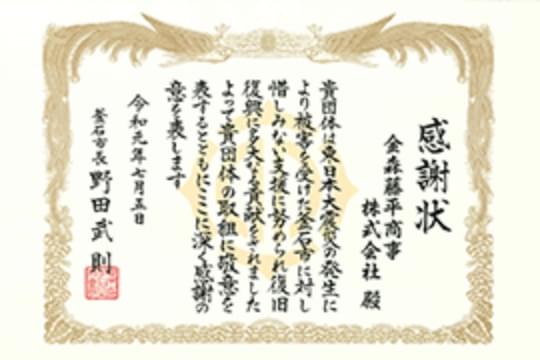 感謝状
金森藤平商事
株式会社 殿
貴団体は東日本大震災の発生に
より被害を受けた釜石市に対し
惜しみない支援に努められ復旧
復興に多大な貢献をされました
よって貴団体の取組に敬意を
表するとともにここに深く感謝の
意を表します
令和元年七月五日
釜石市長 野田武則